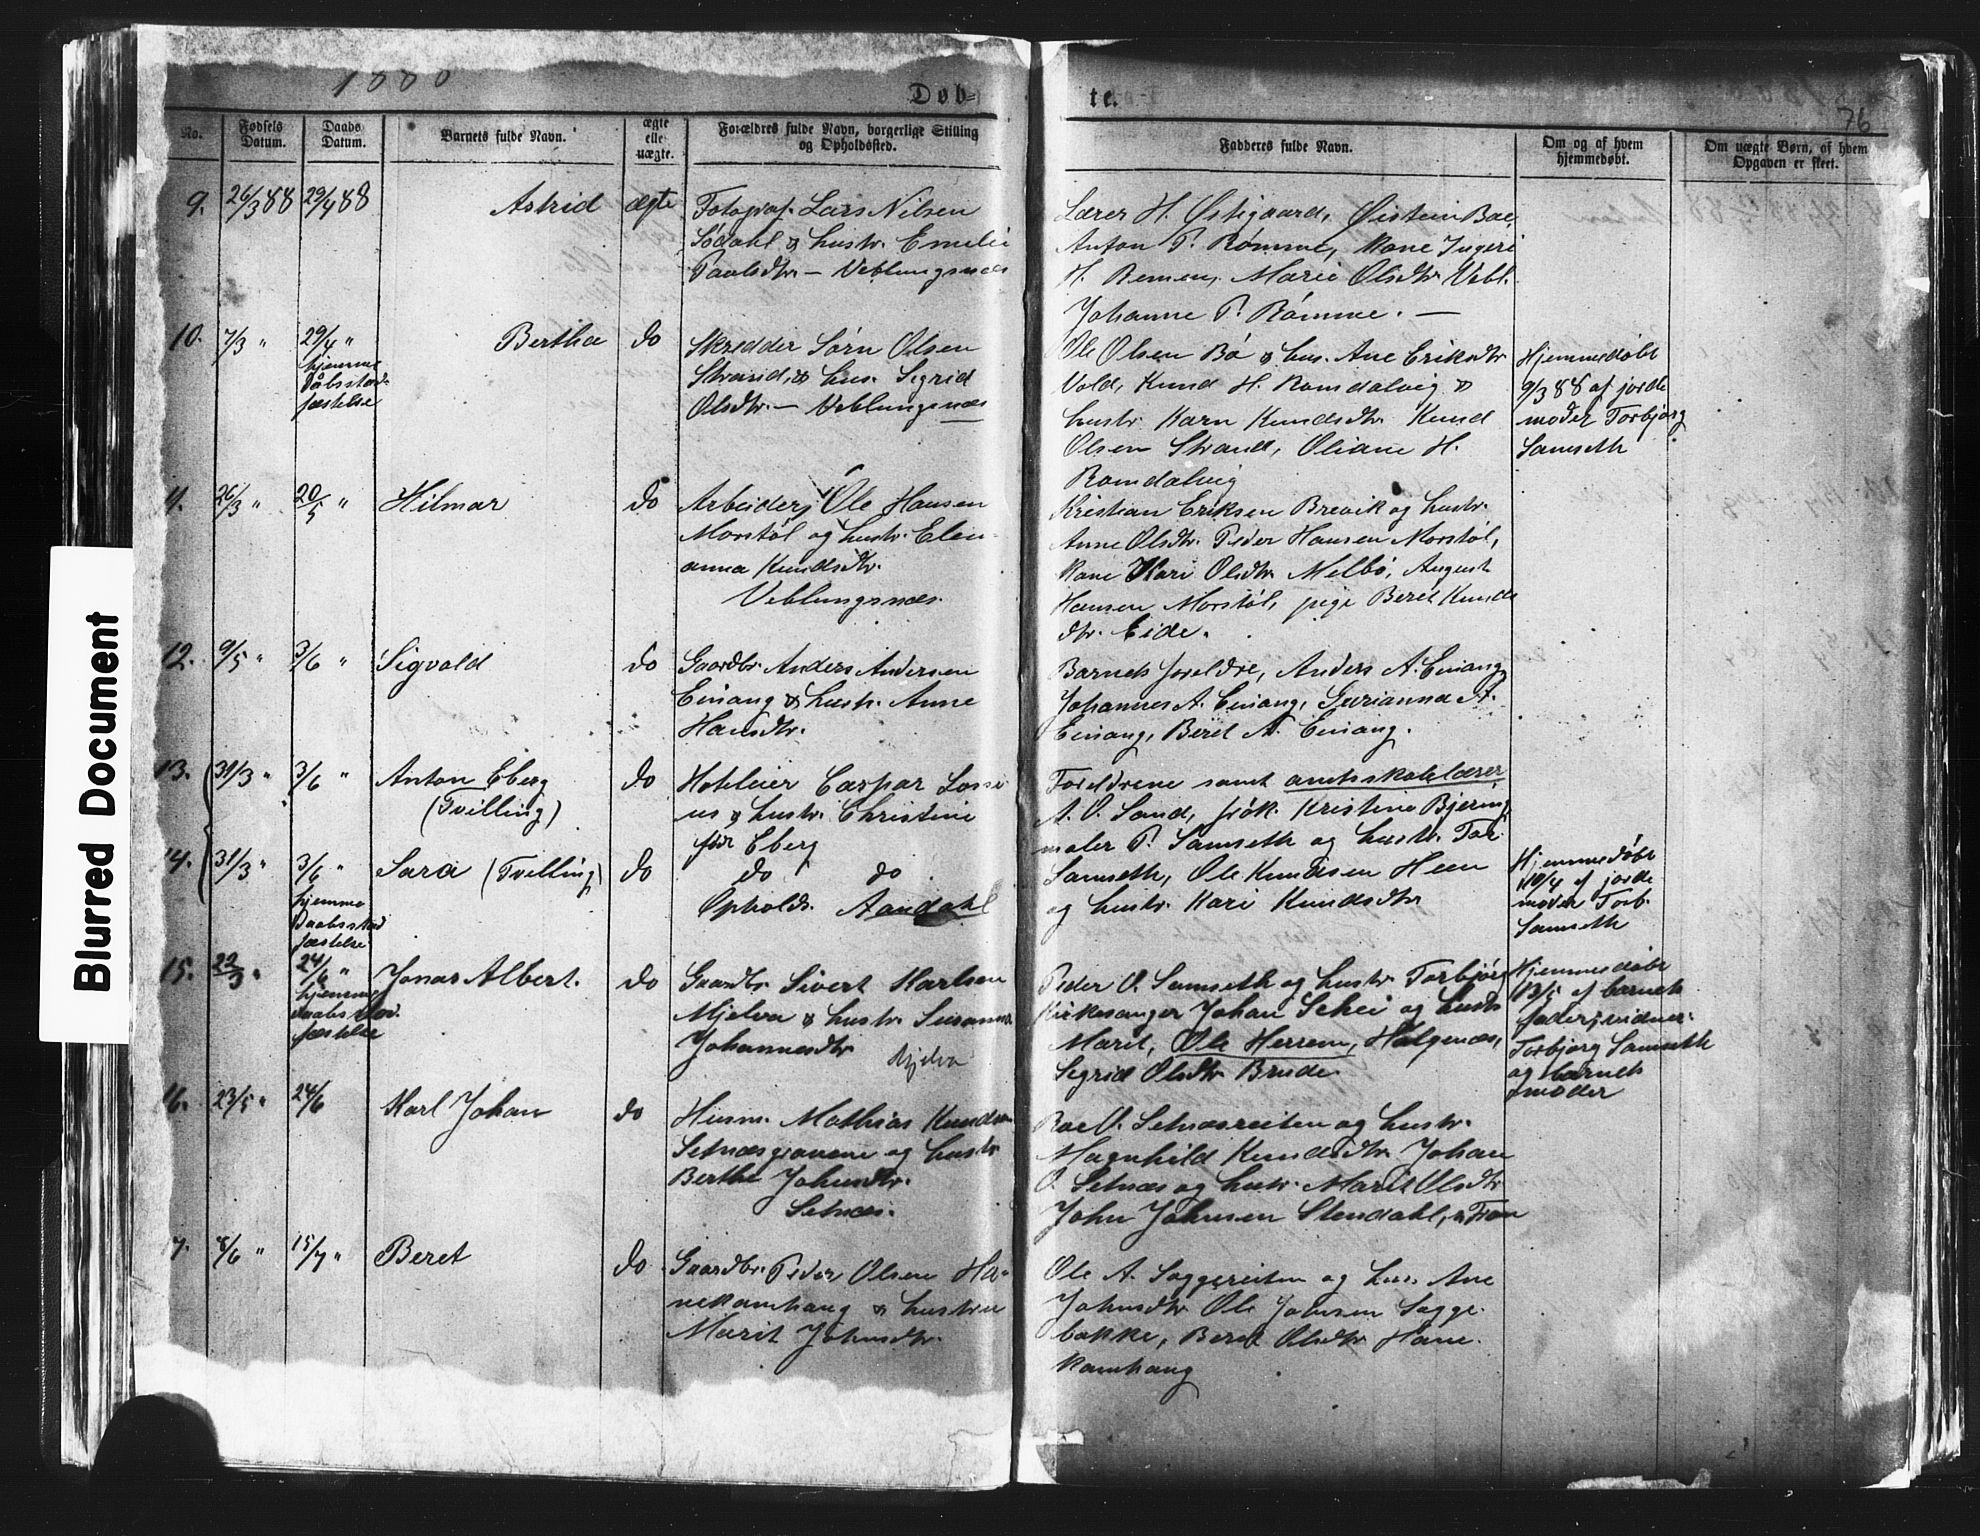 1888
Døb=
te.
76
No.
Fødsels Datum.
Daabs Datum.
Barnets fulde Navn.
ægte elle uægte.
Forældres fulde Navn, borgerlige Stilling og Opholdssted.
Fadderes fulde Navn.
Om og af hvem hjemmedøbt.
Om uægte Børn, af hvem Opgaven er skeet.
9. 26/3 88 29/4 88 Astrid ægte
Fotograf. Lars Nilsen
Sødahl & hustr. Emelie
Paalsdtr. — Veblungsnæs
Lærer H. Østigaard, Øistein Boe,
Anton P. Rømme, kone Ingeri
H. Remen, Marie Olsdtr. Vebl.
Johanne P. Rømme. —
10. 7/3 " 29/4 " Bertha do
hjemme
dåbsstad-
fæstelse
Skredder Sørn Olsen
Strand, & hus. Segrid
Olsdtr. — Veblungsnæs
Ole Olsen Bø & hus. Ane Eriksdtr
Vold, Knud H. Romdalvig &
hustr Karn Knudsdtr. Knud
Olsen Strand, Oliane H.
Romdalvig
Hjemmedøbt
9/3 88 af jorde
moder Torbjørg
Samseth
11. 26/3 " 20/5 " Hilmar do
Arbeider, Ole Hansen
Morstøl og hustr. Elen
anna Knudsdtr.
Veblungsnæs.
Kristian Eriksen Brevik og hustr.
Anne Olsdtr. Peder Hansen Morstøl,
kone Kari Olsdtr Melbø, August
Hansen Morstøl, pige Beret Knuds
dtr. Eide.
12. 9/5 " 3/6 " Sigvald do
Gaardbr. Anders Andersen
Einang & hustr. Anne
Hansdtr.
Barnets foreldre, Anders A. Einang,
Johannes A. Einang, Gurianna A.
Einang, Beret A. Einang.
13. 31/3 " 3/6 " Anton Eberg do
(Tvilling)
Hotleier Caspar Lossi
us & hustr. Christine
født Eberg
Foreldrene samt amtsskolelærer
A. O. Sand, frøk. Kristine Bjering,
maler P. Samseth og hustr. Tor.
14. 31/3 " 3/6 " Sara (Tvilling) do
hjemme
daabsstad
fæstelse
do do
Opholdr. Aandahl
Samseth, Ole Knudsen Heen
og hustr. Kari Knudsdtr
Hjemmedøbt
10/4 af jorde
moder Torb.
Samseth
15. 22/3 " 24/6 " Jonas Albert. do
hjemme
daabsstad.
fæstelse
Gaardbr. Sivert Karlsen
Mjelva & hustr. Susanna
Johannesdtr
Mjelva
Peder O. Samseth og hustr Torbjørg
Kirkesanger Johan Schei og hustr
Marit, Ole Herrem, Holgenæs,
Segrid Olsdtr Brude.
Hjemmedøbt
13/5 af barnets
fader, vidner.
Torbjørg Samseth
og barnets
moder
16. 23/5 " 24/6 Karl Johan do
Husm. Mathias Knudsen
Setnæsgrovene og hustr
Berthe Johnsdtr.
Setnæs.
Roe O. Setnæsreiten og hustr.
Magnhild Knudsdtr Johan
O. Setnæs og hustr. Marit Olsdtr
John Johnsen Stendahl,
17. 8/6 " 15/7 " Beret do
Gaardbr. Peder Olsen Ha-
nekamhaug & hustru
Marit Johnsdtr.
Ole A. Soggereiten og hus. Ane
Johnsdtr. Ole Johnsen Sogge.
bakke, Beret Olsdtr Hane.
kamhaug
Blurred Document